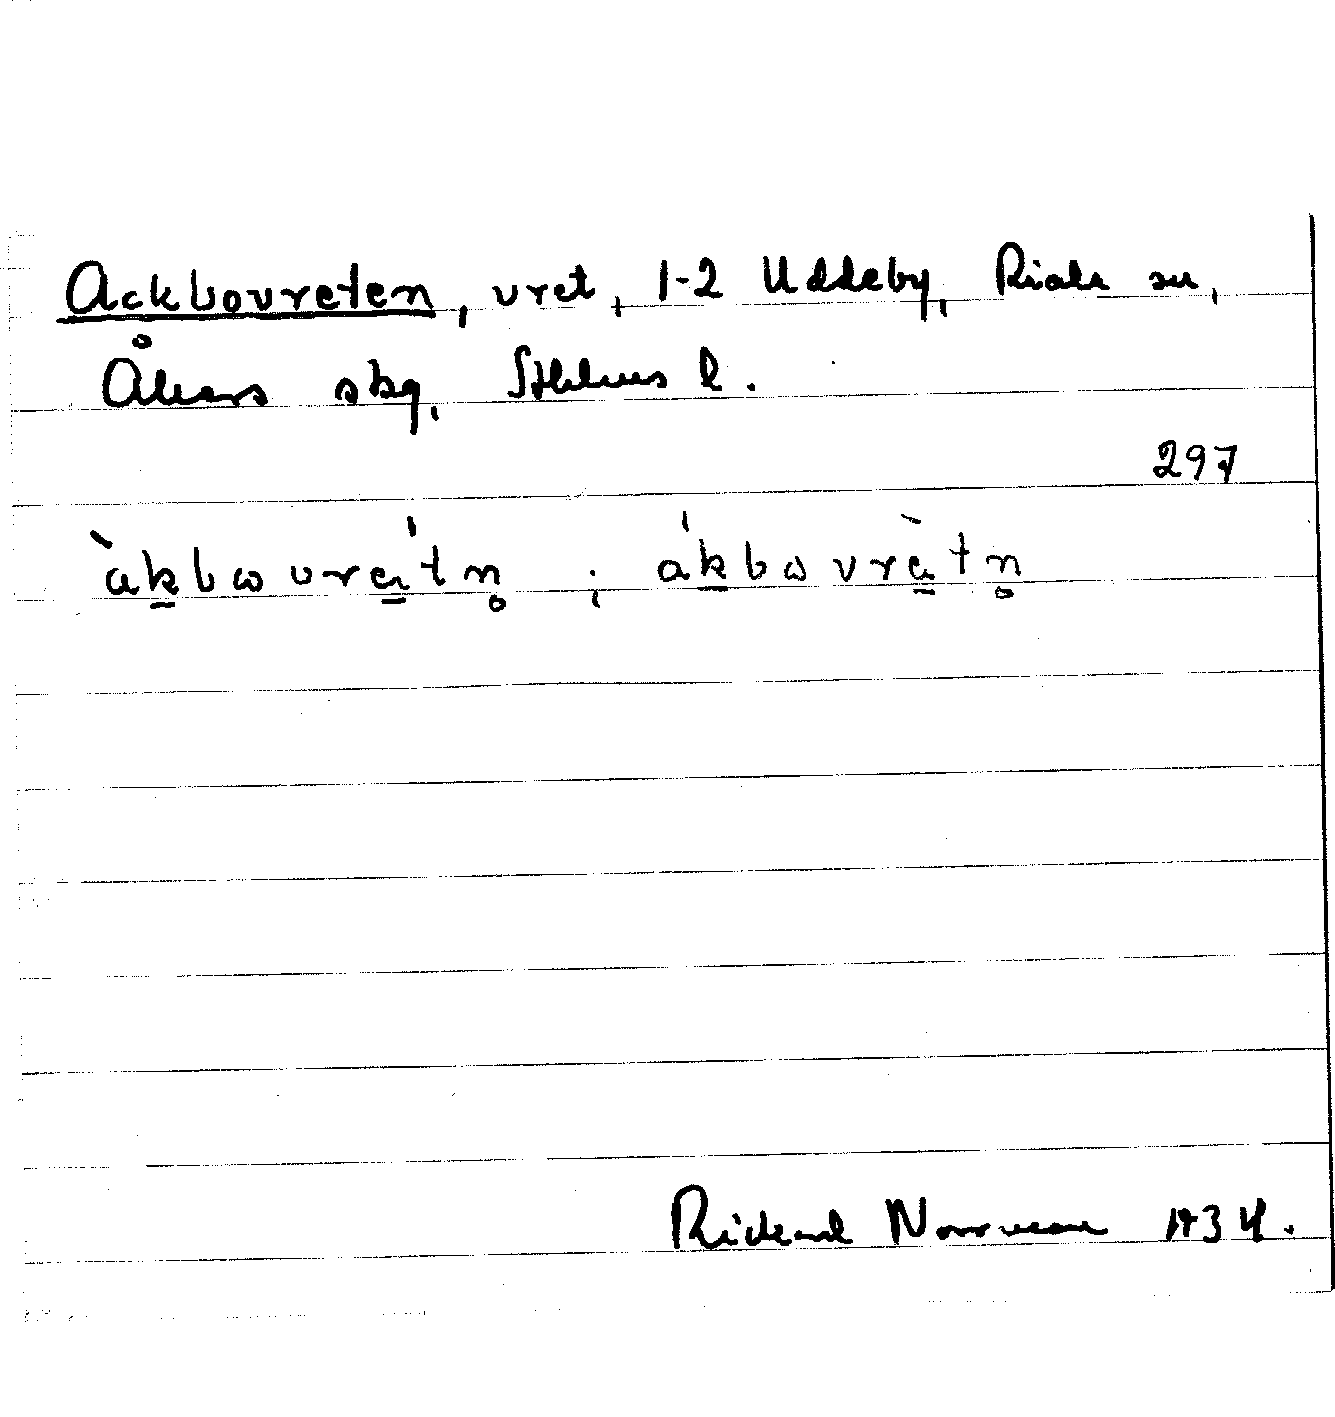 Ackbovreten, vret, 1-2 Uddeby, Riala sn,
Åkers skg, Sthlms l.
297
àkbωvra̱ˈtn̥ ; ákbωvrà̱tn̥
Rickard Norrman 1934.